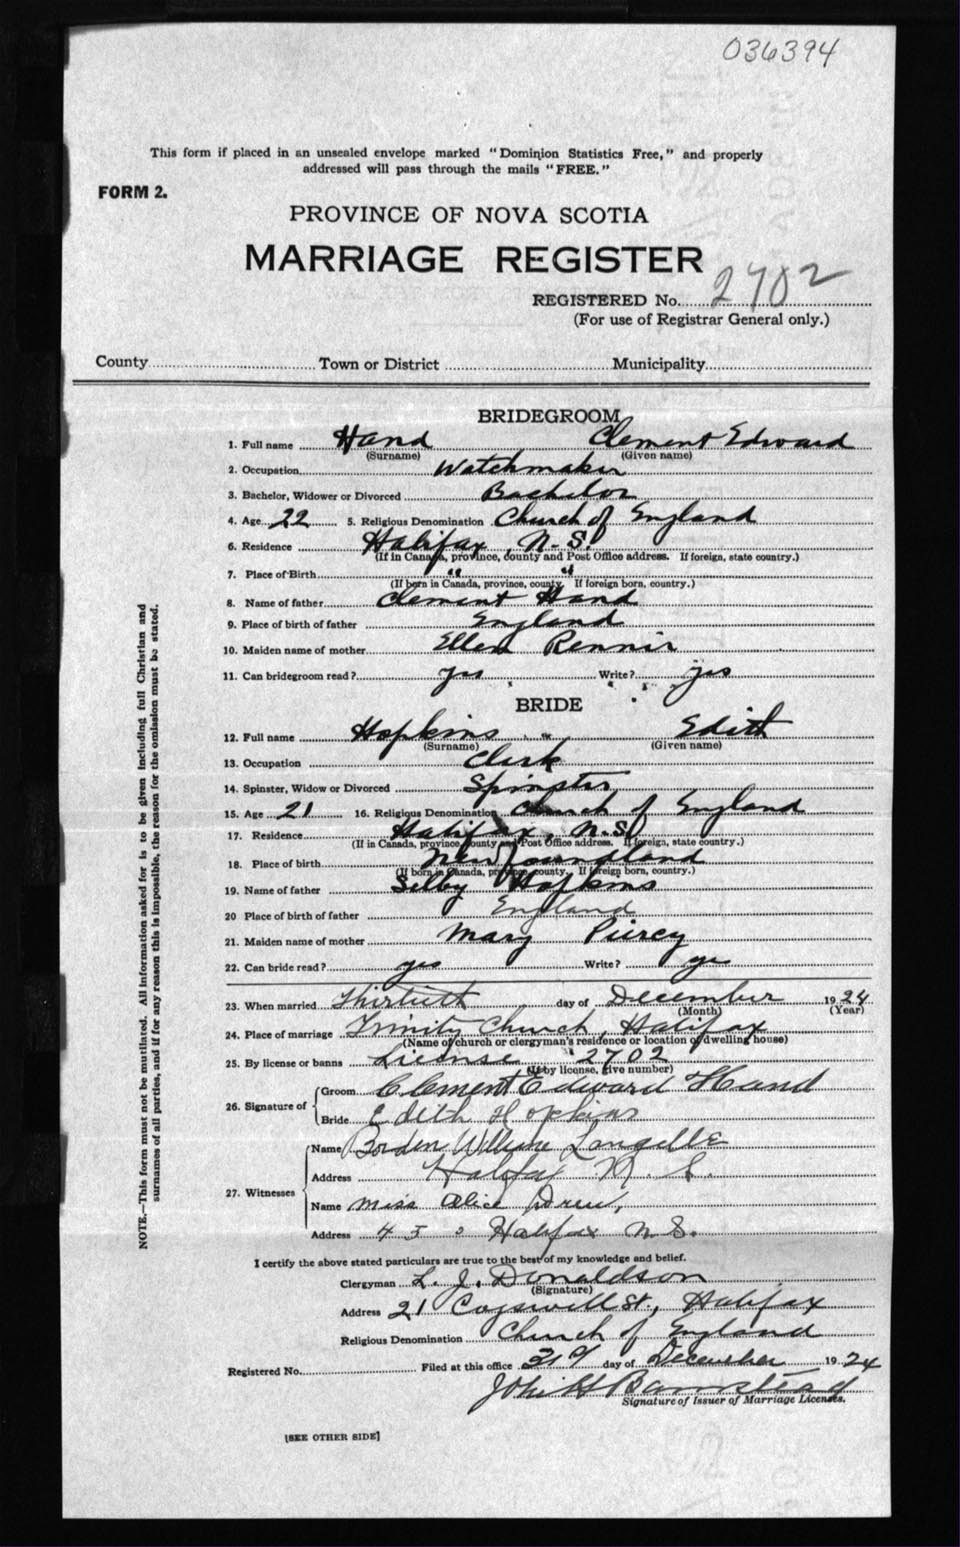 036394
This form if placed in an unsealed envelope marked "Dominion Statistics Free," and properly
addressed will pass through the mails "FREE."
FORM 2.
PROVINCE OF NOVA SCOTIA
MARRIAGE REGISTER
REGISTERED No. 2702
(For use of Registrar General only.)
County Town or District Municipality
BRIDEGROOM
1. Full name Hand Clement Edward
(Surname) (Given name)
2. Occupation Watchmaker
3. Bachelor, Widower or Divorced Bachelor
4. Age 22 5. Religious Denomination Church of England
6. Residence Halifax, N.S.
(If in Canada, province, county and Post Office address. If foreign, state country.)
7. Place of Birth " "
(If born in Canada, province, county. If foreign born, country.)
8. Name of father Clement Hand
9. Place of birth of father England
10. Maiden name of mother Ellen
11. Can bridegroom read? yes Write? yes
BRIDE
12. Full name Hopkins Edith
(Surname) (Given name)
13. Occupation Clerk
14. Spinster, Widow or Divorced Spinster
15. Age 21 16. Religious Denomination Church of England
17. Residence Halifax, N.S.
(If in Canada, province, county and Post Office address. If foreign, state country.)
18. Place of birth Newfoundland
(If born in Canada, province, county. If foreign born, country.)
19. Name of father Selby Hopkins
20 Place of birth of father England
21. Maiden name of mother Mary Piercy
22. Can bride read? yes Write? yes
23. When married Thirtieth day of December 1924
(Month) (Year)
24. Place of marriage Trinity Church, Halifax
(Name of church or clergyman's residence or location of dwelling house)
25. By license or banns License 2702
(If by license, give number)
26. Signature of Groom Clement Edward Hand
Bride Edith Hopkins
27. Witnesses Name Borden William Langille
Address Halifax N.S.
Name Miss Alice Drew,
Address Halifax N.S.
I certify the above stated particulars are true to the best of my knowledge and belief.
Clergyman L. J. Donaldson
(Signature)
Address 21 Cogswell St., Halifax
Religious Denomination Church of England
Registered No. Filed at this office 31st day of December 1924
John H Barnstead
Signature of Issuer of Marriage Licenses.
[SEE OTHER SIDE]
NOTE.—This form must not be mutilated. All information asked for is to be given including full Christian and
surnames of all parties, and if for any reason this is impossible, the reason for the omission must be stated.